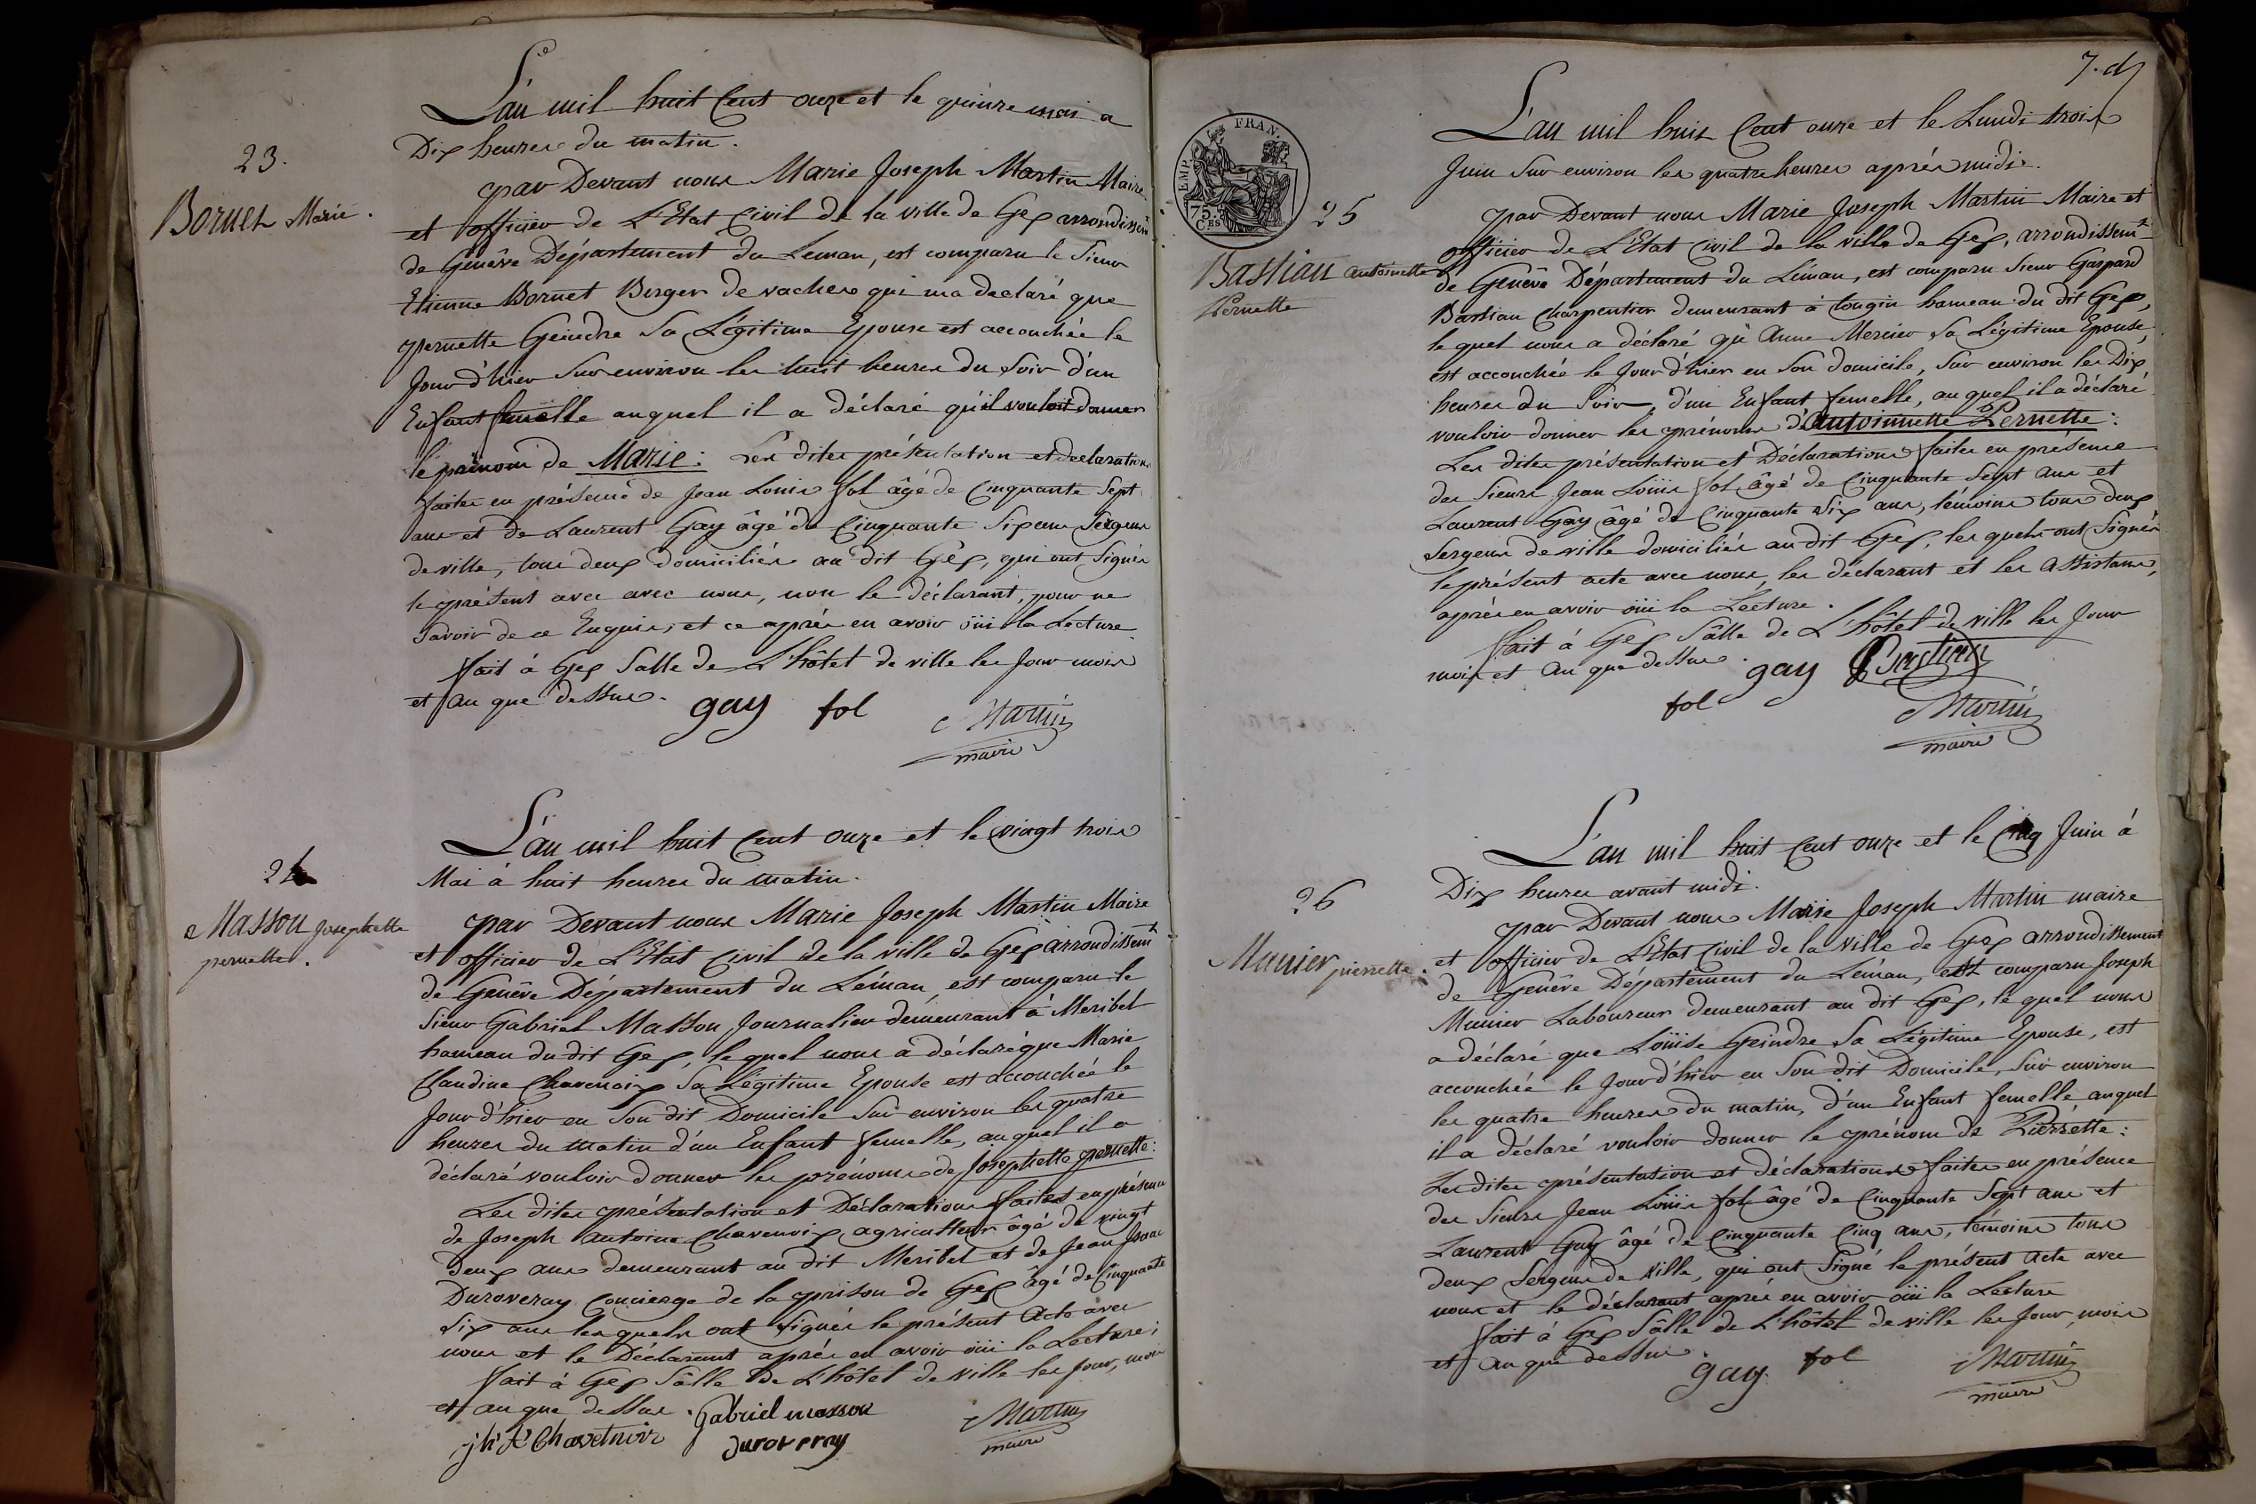 23.
Bornet Marie.
L'an mil huit Cent onze et le quinze mai a
Dix heures du matin.
par Devant nous Marie Joseph Martin Maire
et officier de L'Etat Civil de la ville de Gex arrondissemt
de Genêve Département du Leman, est comparu le Sieur
Etienne Bornet Berger de vaches qui ma declaré que
pernette Geindre Sa Légitime Epouse est accouchée le
Jour d'hier Sur environ les huit heures du Soir d'un
Enfant femelle auquel il a déclaré qu'il vouloit donner
le prénom de Marie: Les dites présentation et declaration
faites en présence de Jean Louis fol âgé de Cinquante Sept
ans et de Laurent Gay âgé de Cinquante Six ans Sergens
de ville, tous deux domiciliés au dit Gex, qui ont Signés
le présent avec avec nous, non le déclarant, pour ne
Savoir de ce Enquis, et ce après en avoir oüi la Lecture.
fait à Gex Salle de L'hôtel de ville les Jour mois
et an que dessus. gay fol Martin
maire
24
Masson Josephette
pernette.
L'an mil huit Cent onze et le vingt trois
Mai à huit heures du matin.
par Devant nous Marie Joseph Martin Maire
et officier de L'Etat Civil de la ville de Gex arrondissemt
de Genêve Département du Léman est comparu le
Sieur Gabriel Masson Journalier demeurant à Meribel
hameau du dit Gex, le quel nous a déclaré que Marie
Claudine Chavenoix Sa Légitime Epouse est accouchée le
Jour d'hier en Son dit Domicile Sur environ les quatre
heures du matin d'un Enfant femelle, auquel il a
déclaré vouloir donner les prénoms de Josephette pernette:
Les dites présentation et Déclaration faites en présence
de Joseph antoine Chavenoix agriculteur âgé de vingt
Deux ans demeurant au dit Meribel et de Jean Isaac
Duroveray Concierge de la prison de Gex âgé de Cinquante
Six ans lesquels ont Signés le présent Acte avec
nous et le Déclarant après en avoir oüi la Lecture;
fait à Gex Sâlle de L'hôtel de ville les Jour, mois
et an que dessus. Gabriel masson Martin
Chavetnoir duroveray maire
7.
EMP. FRAN.
75 Ces
25
Bastian antoinette
Pernette
L'an mil huit Cent onze et le Lundi trois
Juin Sur environ les quatre heures après midi.
par Devant nous Marie Joseph Martin Maire et
officier de L'Etat Civil de la ville de Gex, arrondissemt
de Genêve Département du Léman, est comparu Sieur Gaspard
Bastian Charpentier demeurant à tougin hameau du dit Gex,
le quel nous a déclaré qu'Anne Mercier Sa Légitime Epouse,
est accouchée le Jour d'hier en Son domicile, Sur environ les Dix
heures du Soir, d'un Enfant femelle, au quel il a déclaré
vouloir donner les prénoms d'antoinette Pernette:
Les dites présentation et Déclaration faites en présence
des Sieurs Jean Loüis fol âgé de Cinquante Sept ans et
Laurent Gay âgé de Cinquante Six ans, témoins tous deux
Sergens de ville domiciliés au dit Gex, les quels ont Signés
le présent acte avec nous, les déclarant et les assistans,
après en avoir oüi la Lecture.
fait à Gex Sâlle de L'hôtel de ville les Jour
mois et an que dessus. gay Bastian
fol Martin
maire
26
Munier pierrette.
L'an mil huit Cent onze et le Cinq Juin à
Dix heures avant midi.
par Devant nous Marie Joseph Martin maire
et officier de L'Etat Civil de la ville de Gex arrondissement
de Genêve Département du Léman, est comparu Joseph
Munier Laboureur demeurant au dit Gex, le quel nous
a déclaré que Loüise Geindre Sa Légitime Epouse, est
accouchée le Jour d'hier en Son dit Domicile, Sur environ
les quatre heures du matin, d'un Enfant femelle auquel
il a déclaré vouloir donner le prénom de Pierrette:
Les dites présentation et déclaration faites en présence
des Sieurs Jean Loüis fol âgé de Cinquante Sept ans et
Laurent Gay âgé de Cinquante Cinq ans, témoins tous
deux Sergens de ville, qui ont Signé le présent Acte avec
nous et le déclarant après en avoir oüi la Lecture
fait à Gex Sâlle de L'hôtel de ville les Jour, mois
et an que dessus. gay fol Martin
maire